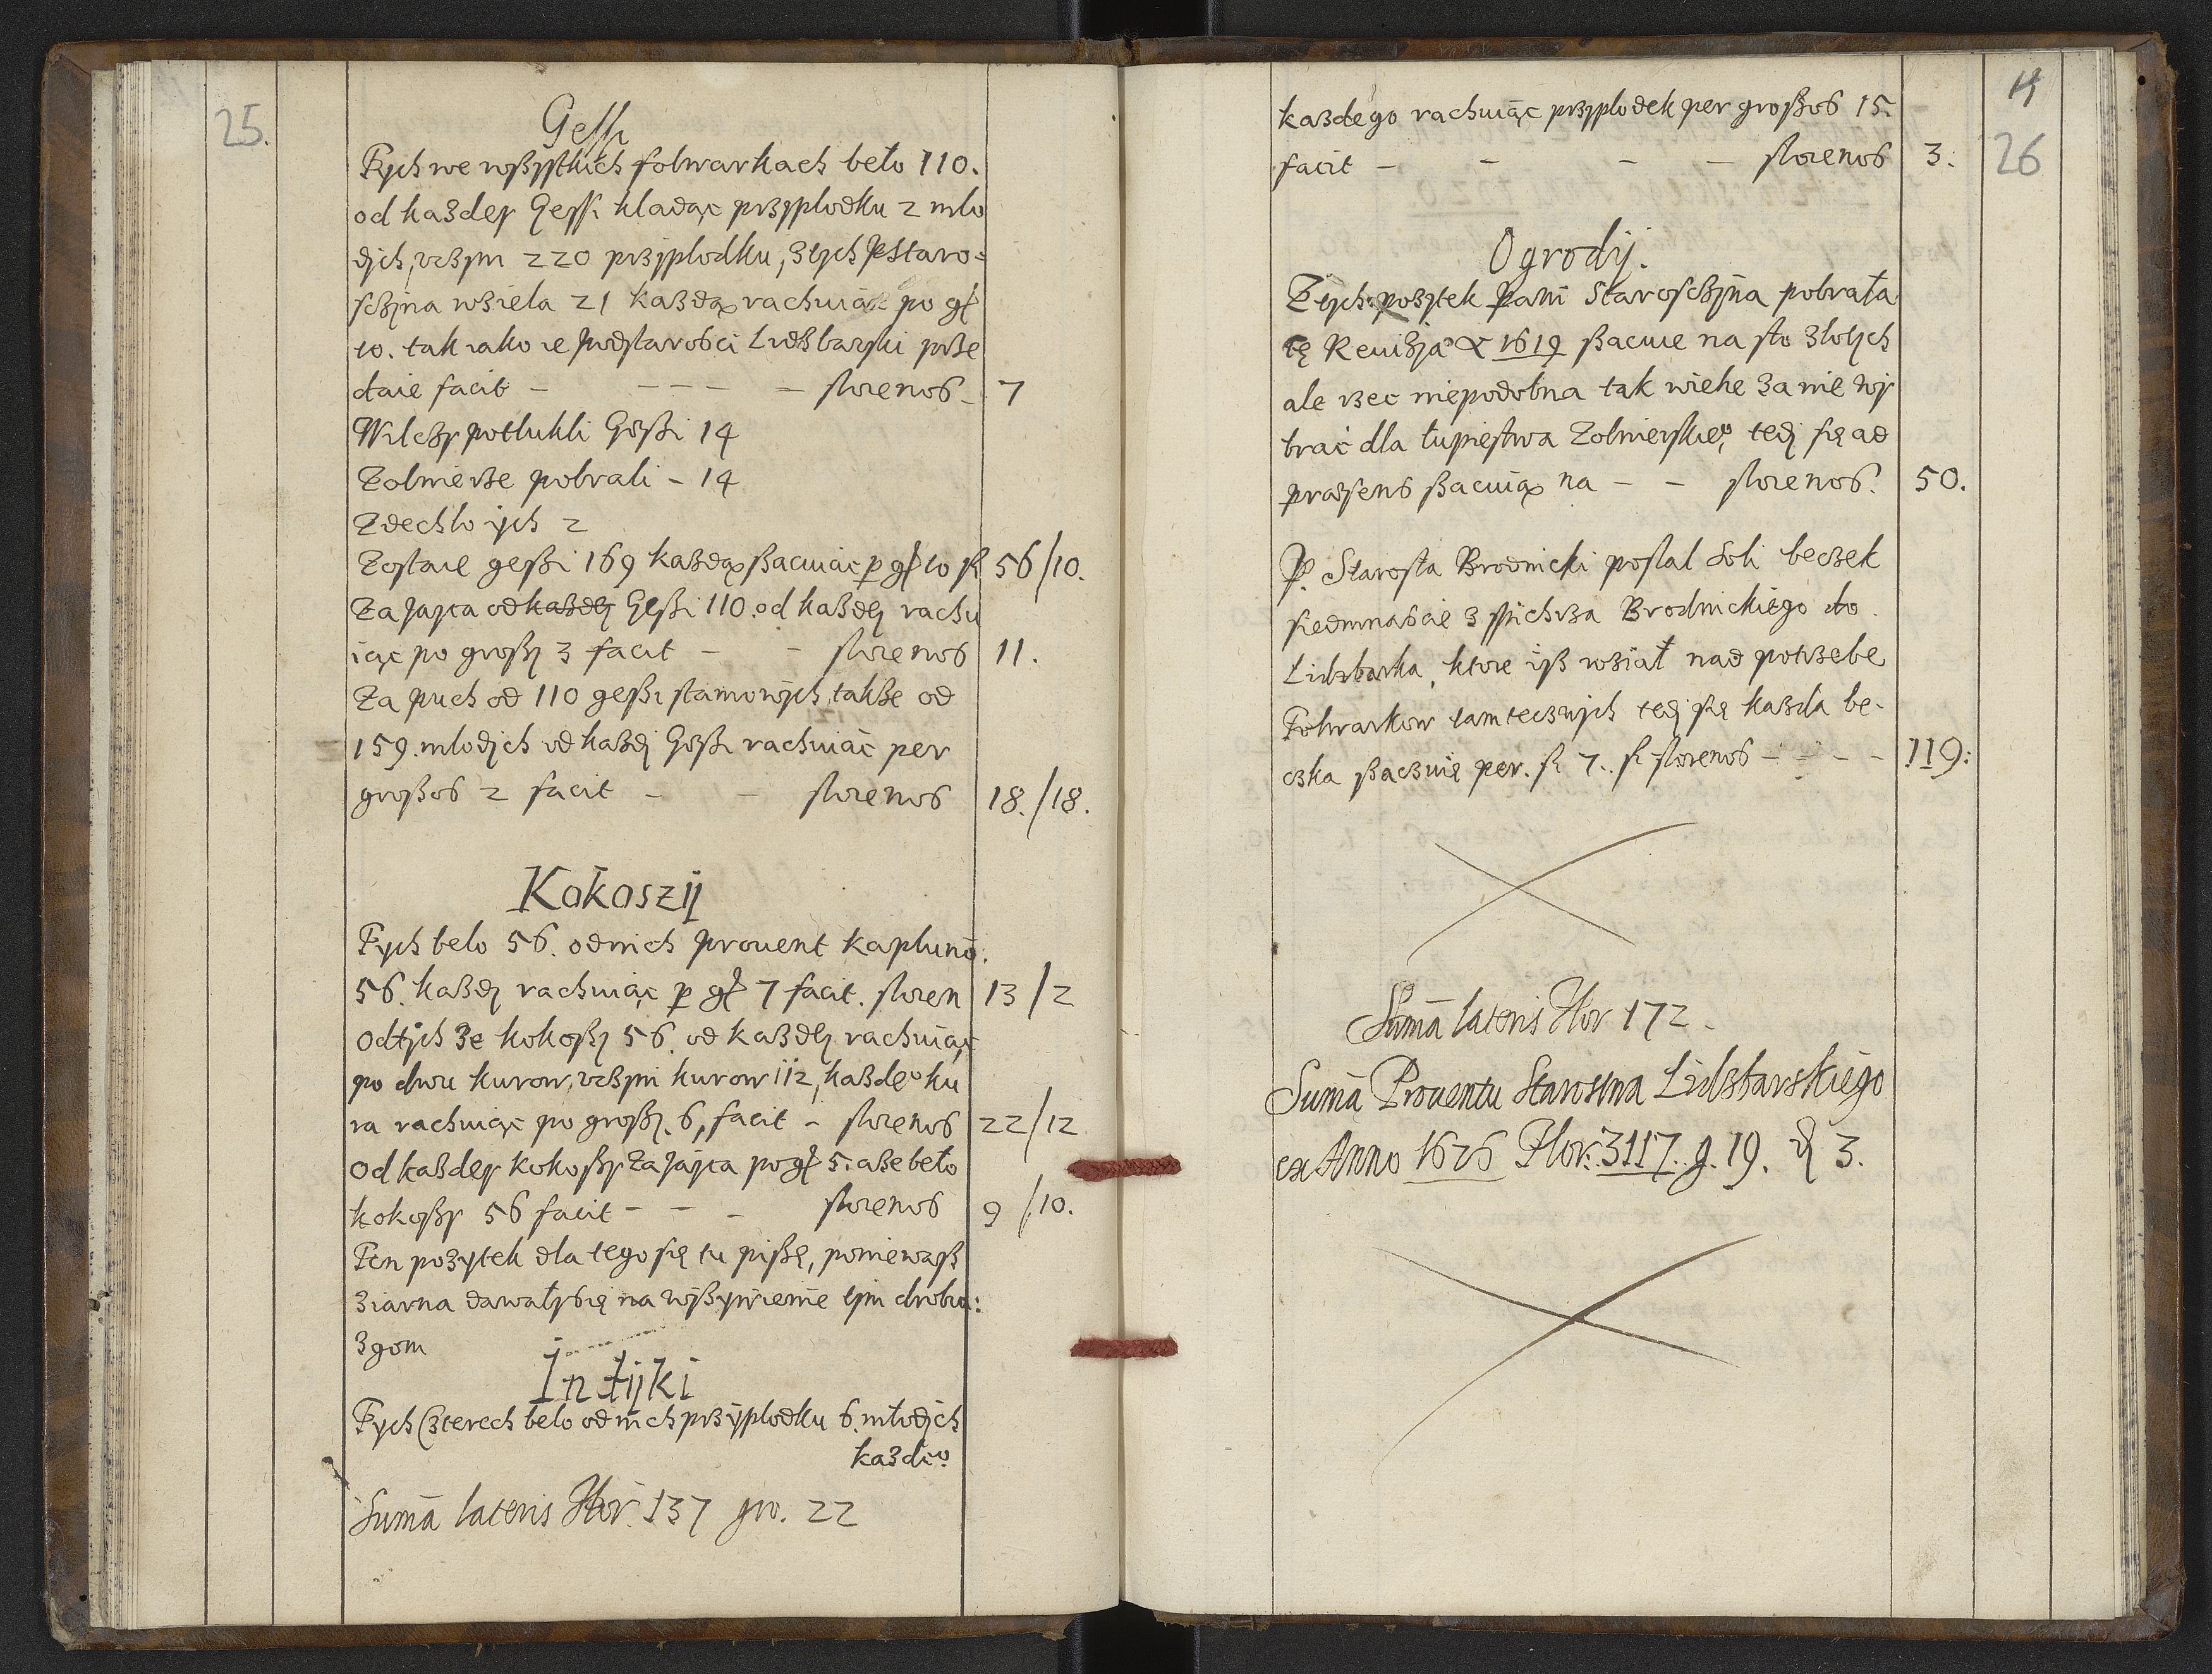 25.
Gęssi
Tych we wßystkich folwarkach beło 110.
od każdey Gęssi kladąc przyplodku 2 mlo
dych, vczym 220 przyplodku, z tych P Staro=
sczyna wziela 21 każdą rachuiąc po gł
10. tak iako ie Podstarosci Lidzbarski prze
daie facit - - - - - florenos - 7
Wilczy potlukli Gęßi 14
Zolnierze pobrali - 14
Zdechlo ych 2
Zostaie geßi 169 każdą ßacuiąc p gł 10 fl 56/10.
Za Jayca od każdey Gęßi 110. od każdey rachu
iąc po großy 3 facit - - florenos 11.
Za puch od 110 geßi stamowych, takße od
159. mlodych od każdy Gęßi rachuiąc per
großos 2 facit - - florenos 18./18.
Kokoszij
Tych belo 56. od nich prouent kapłunō.
56. każdy rachuiąc p gł 7 facit. floren 13/2
Od tych że kokoßy 56. od każdey rachuiąc
po dwu kurow, vczyni kurow 112, każdeº ku
ra rachuiąc po großy. 6, facit - florenos 22/12
Od każdey kokoßy Za Jayca po gł 5. aże beło
kokoßy 56 facit - - - florenos 9 /10.
Ten pożytek dla tego się tu pißę, poniewaß
ziarna dawały się na wyżywienie tym drobia:
zgom
Intijki
Tych Czterech belo od nich przyplodku 6. młodych
każdeº
Sumā lateris Flor. 137 gro. 22
każdego rachuiąc przyplodek per großos 15.
facit - - - - florenos 3.
26
Ogrodij.
Z tych pożytek Pani Starosczyna pobrała
tę Reuizya 1619 ßacuie na sto złotych
ale rzec niepodobna tak wiele za nie wy
brać dla łupiestwa Zolnierskieº, tedy się ad
præsens ßacuią na - - florenos. 50.
P. Starosta Brodnicki posłal Soli beczek
siedmnascie z spichrza Brodnickiego do
Lidzbarka, ktore iß wziął nad potrzebę
Folwarkow tamtecznych tedy się każda be-
czka ßacuię per. fl 7. fl florenos - - - - 119:
Sumā lateris Flor 172.
Sumā Prouentu Starostwa Lidzbarskiego
ex Anno 1626 Flor: 3117. g. 19. ₰ 3.